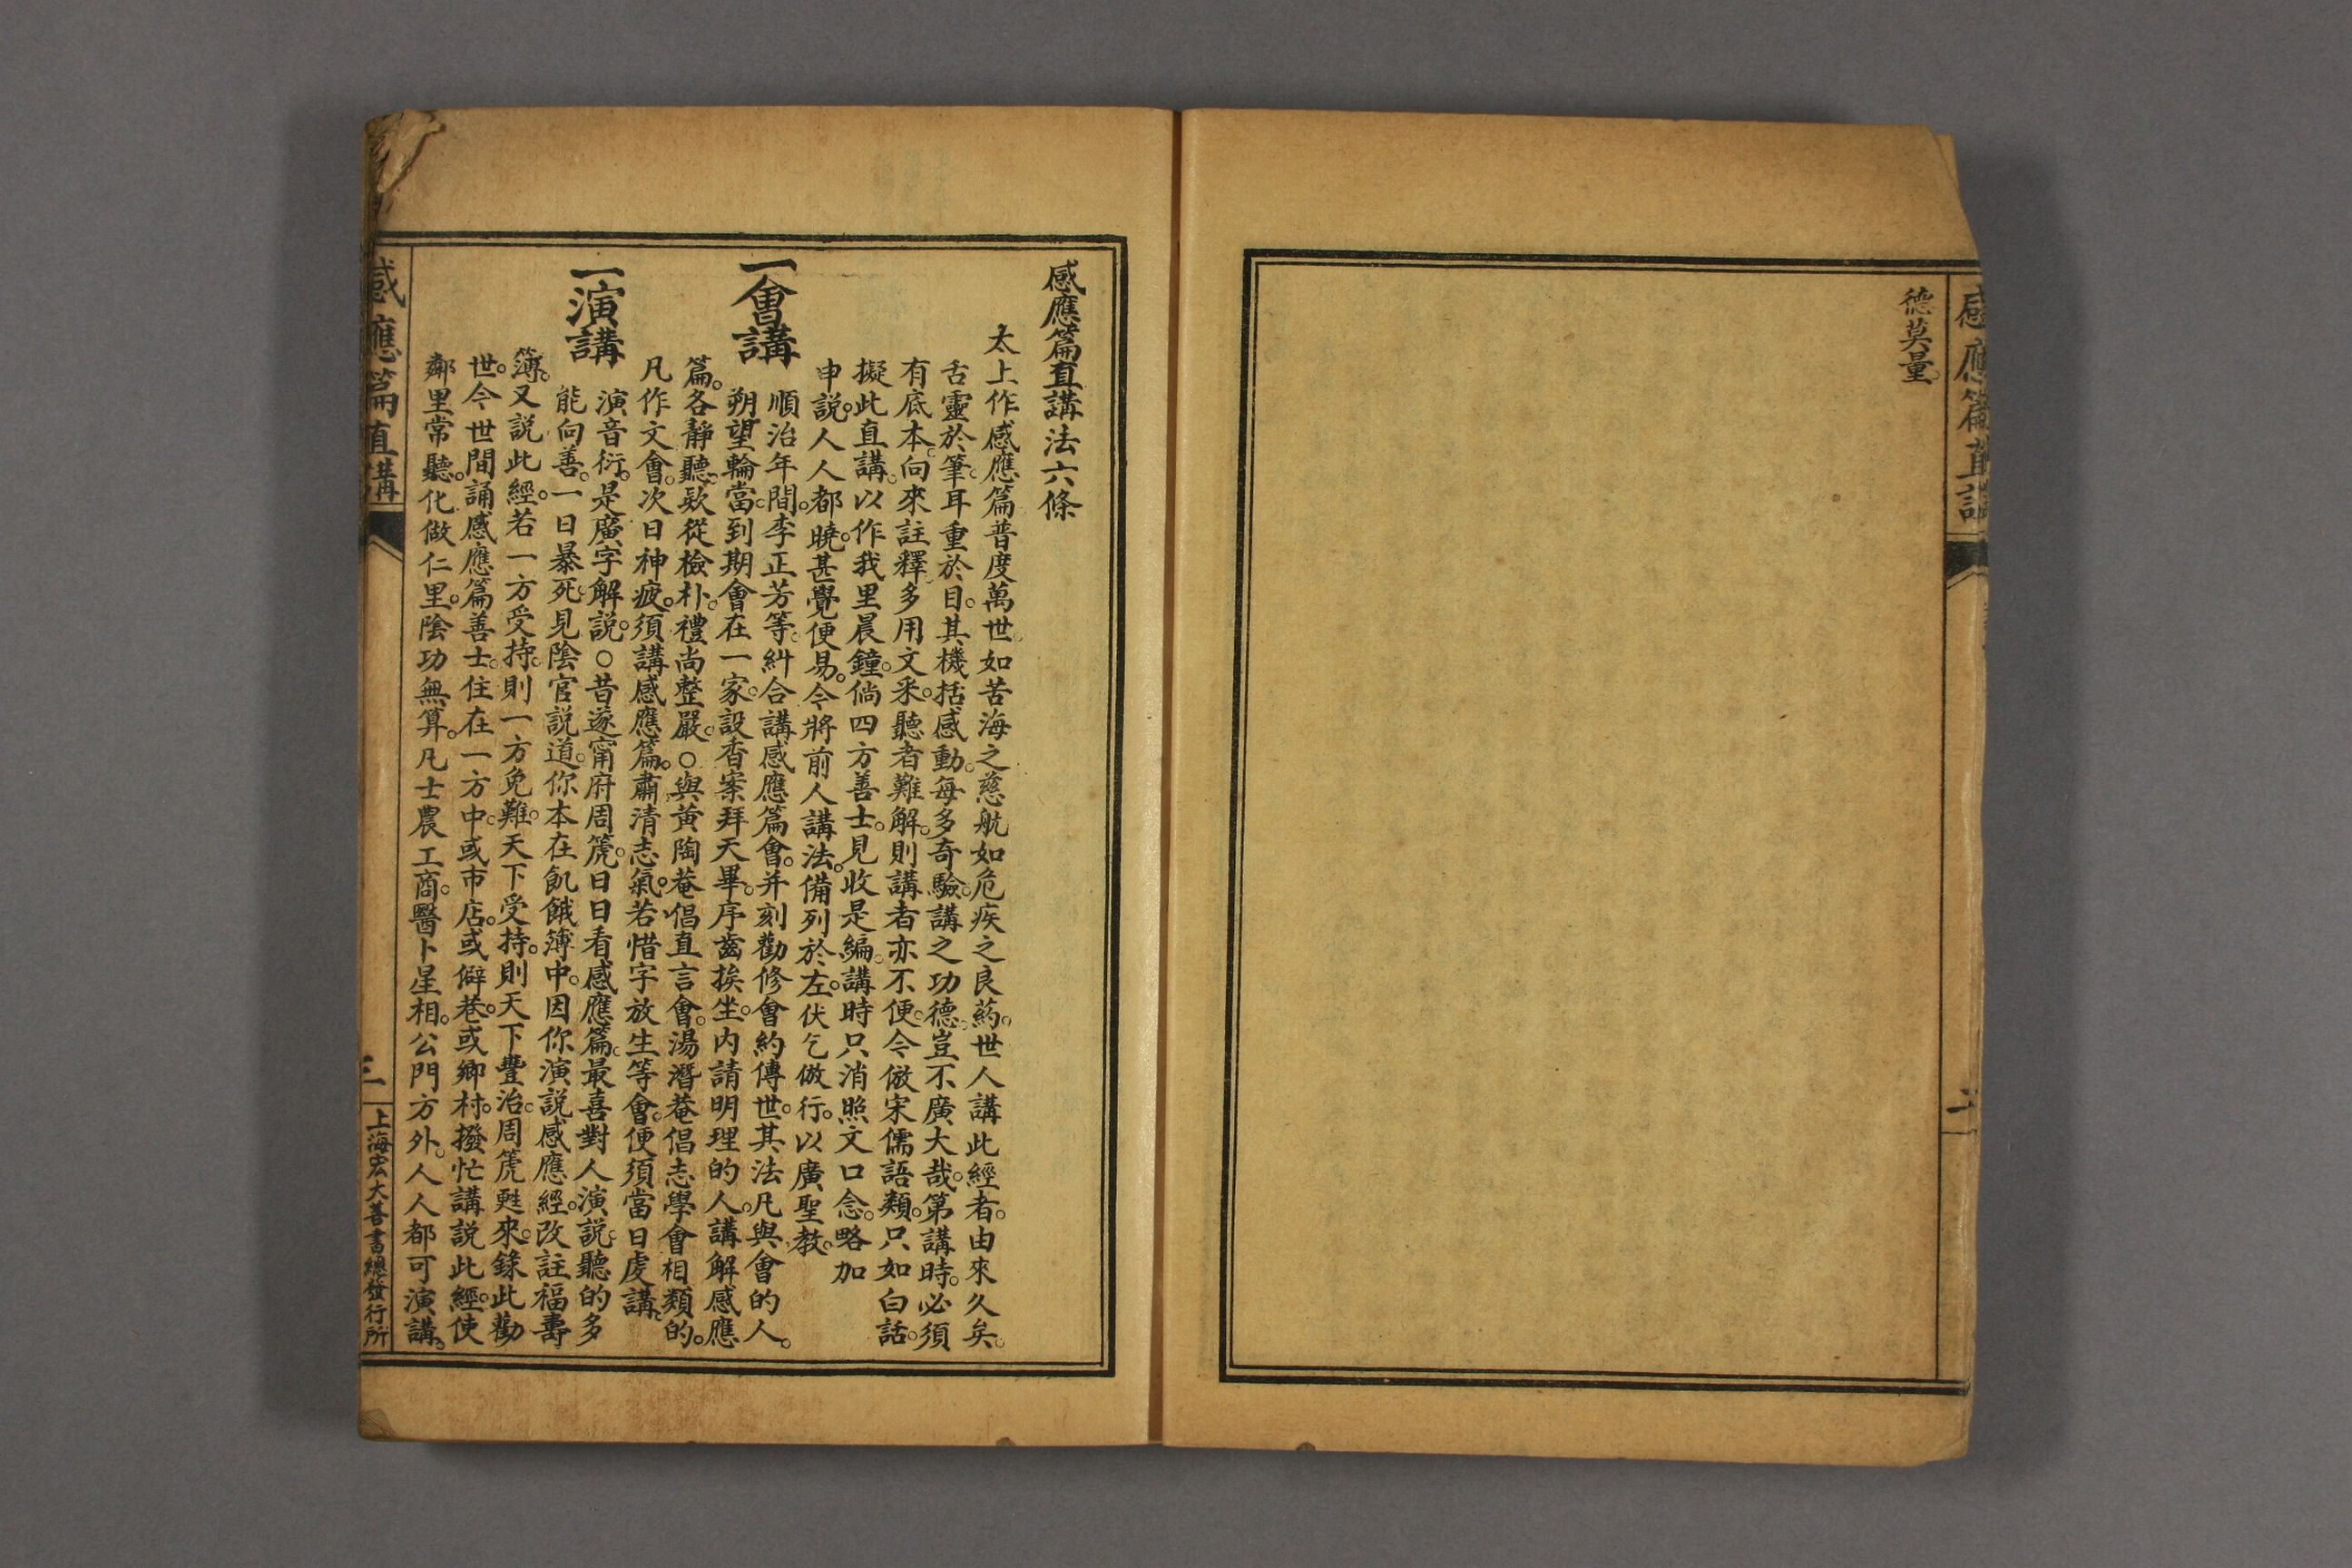 感應篇直講
二
德莫量。
感應篇直講法六條
太上作感應篇普度萬世。如苦海之慈航如危疾之良葯。世人講此經者。由來久矣。
舌靈於筆。耳重於目。其機括感動。每多奇驗。講之功德。豈不廣大哉。第講時。必須
有底本。向來註釋。多用文釆。聽者難解。則講者亦不便。今倣宋儒語類。只如白話。
擬此直講。以作我里晨鐘。倘四方善士。見收是編。講時只消照文口念。略加
申說。人人都曉。甚覺便易。今將前人講法。備列於左。伏乞倣行。以廣聖教。
一會講
順治年間。李正芳等。糾合講感應篇會。并刻勸修會約傳世。其法凡與會的人。
朔望輪當。到期會在一家。設香案拜天畢。序齒挨坐。內請明理的人。講解感應
篇。各靜聽。欵從檢朴。禮尚整嚴。○與黃陶菴倡直言會。湯潛菴倡志學會相類的。
凡作文會。次日神疲。須講感應篇。肅清志氣。若惜字放生等會。便須當日虔講。
一演講
演音衍。是廣字解說。○昔遂甯府周箎。日日看感應篇。最喜對人演說。聽的多
能向善。一日暴死。見陰官說道。你本在飢餓簿中。因你演說感應經。改註福壽
簿。又說此經。若一方受持。則一方免難。天下受持。則天下豐治。周箎甦來。錄此勸
世。今世間誦感應篇善士。住在一方中。或市店。或僻巷。或鄉村。撥忙講說此經。使
鄰里常聽。化做仁里。陰功無算。凡士農工商。醫卜星相。公門方外。人人都可演講。
感應篇直講
三
上海宏大善書總發行所